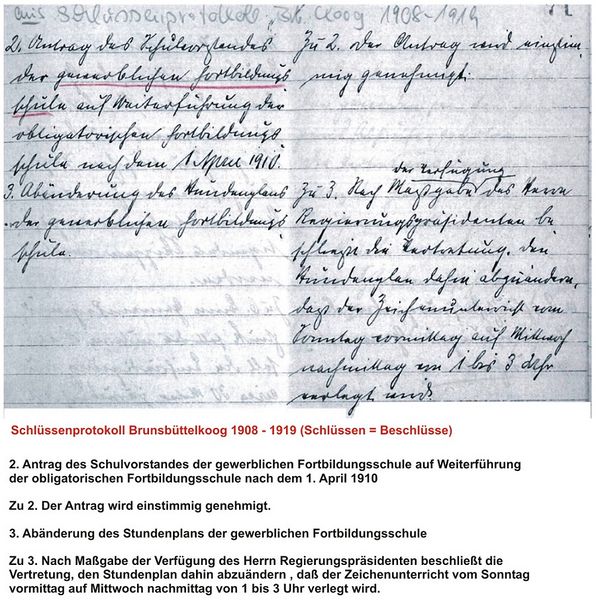 aus Schlüssenprotokoll Bb. Koog 1908-1919
2. Antrag des Schulvorstandes
der gewerblichen Fortbildungs
schule auf Weiterführung der
obligatorischen Fortbildungs
schule nach dem 1. April 1910.
3. Abänderung des Stundenplans
der gewerblichen Fortbildungs
schule.
Zu 2. Der Antrag wird einstim
mig genehmigt.
der Verfügung
Zu 3. Nach Maßgabe des Herrn
Regierungspräsidenten be
schließt die Vertretung, den
Stundenplan dahin abzuändern,
daß der Zeichenunterricht vom
Sonntag vormittag auf Mittwoch
nachmittag von 1 bis 3 Uhr
verlegt wird.
Schlüssenprotokoll Brunsbüttelkoog 1908 - 1919 (Schlüssen = Beschlüsse)
2. Antrag des Schulvorstandes der gewerblichen Fortbildungsschule auf Weiterführung
der obligatorischen Fortbildungsschule nach dem 1. April 1910
Zu 2. Der Antrag wird einstimmig genehmigt.
3. Abänderung des Stundenplans der gewerblichen Fortbildungsschule
Zu 3. Nach Maßgabe der Verfügung des Herrn Regierungspräsidenten beschließt die
Vertretung, den Stundenplan dahin abzuändern , daß der Zeichenunterricht vom Sonntag
vormittag auf Mittwoch nachmittag von 1 bis 3 Uhr verlegt wird.